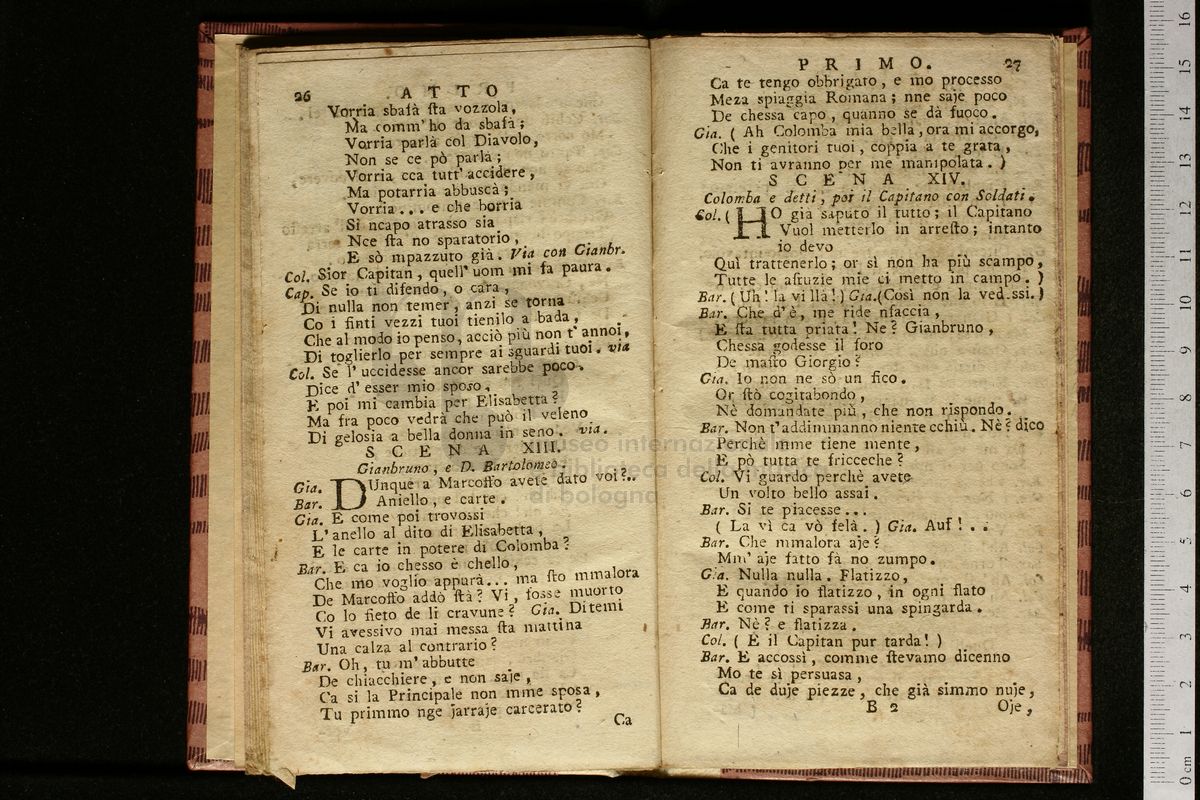 26 ATTO
Vorria sbaſà ſta vozzola,
Ma comm' ho da sbaſà;
Vorria parlà col Diavolo,
Non se ce pò parlà;
Vorria cca tutt' accidere,
Ma potarria abbuscà;
Vorria... e che borria
Si ncapo atrasso sia
Nce ſta no sparatorio,
E sò mpazzuto già. Via con Gianbr.
Col. Sior Capitan, quell' uom mi fa paura.
Cap. Se io ti difendo, o cara,
Di nulla non temer, anzi se torna
Co i finti vezzi tuoi tienilo a bada,
Che al modo io penso, acciò più non t' annoi,
Di toglierlo per sempre ai sguardi tuoi. via
Col. Se l' uccidesse ancor sarebbe poco.
Dice d' esser mio sposo,
E poi mi cambia per Elisabetta?
Ma fra poco vedrà che può il veleno
Di gelosia a bella donna in seno. via.
SCENA XIII.
Gianbruno, e D. Bartolomeo.
Gia. DUnque a Marcoffo avete dato voi?..
Bar. Aniello, e carte.
Gia. E come poi trovossi
L' anello al dito di Elisabetta,
E le carte in potere di Colomba?
Bar. E ca io chesso è chello,
Che mo voglio appurà... ma ſto mmalora
De Marcoffo addò ſta? Vi, fosse muorto
Co lo fieto de li cravune? Gia. Ditemi
Vi avessivo mai messa ſta mattina
Una calza al contrario?
Bar. Oh, tu m' abbutte
De chiacchiere, e non saje,
Ca si la Principale non mme sposa,
Tu primmo nge jarraje carcerato?
Ca
PRIMO. 27
Ca te tengo obbrigato, e mo processo
Meza spiaggia Romana; nne saje poco
De chessa capo, quanno se dà fuoco.
Gia. ( Ah Colomba mia bella, ora mi accorgo,
Che i genitori tuoi, coppia a te grata,
Non ti avranno per me manipolata. )
SCENA XIV.
Colomba e detti, poi il Capitano con Soldati.
Col. ( HO già saputo il tutto; il Capitano
Vuol metterlo in arreſto; intanto
io devo
Quì trattenerlo; or sì non ha più scampo,
Tutte le aſtuzie mie ci metto in campo. )
Bar. ( Uh! la vi llà! ) Gia. (Così non la vedessi.)
Bar. Che d' è, me ride nfaccia,
E ſta tutta priata! Ne? Gianbruno,
Chessa godesse il foro
De maſto Giorgio?
Gia. Io non ne sò un fico.
Or ſtò cogitabondo,
Nè domandate più, che non rispondo.
Bar. Non t'addimmanno niente cchiù. Nè? dico
Perchè mme tiene mente,
E pò tutta te fricceche?
Col. Vi guardo perchè avete
Un volto bello assai.
Bar. Si te piacesse...
( La vì ca vò felà. ) Gia. Auf!...
Bar. Che mmalora aje?
Mm' aje fatto fà no zumpo.
Gia. Nulla nulla. Flatizzo,
E quando io flatizzo, in ogni flato
E come ti sparassi una spingarda.
Bar. Nè? e flatizza.
Col. ( E il Capitan pur tarda! )
Bar. E accossì, comme ſtevamo dicenno
Mo te sì persuasa,
Ca de duje piezze, che già simmo nuje,
B 2 Oje,
museo internazionale
e biblioteca della musica
di bologna
0 cm 1 2 3 4 5 6 7 8 9 10 11 12 13 14 15 16